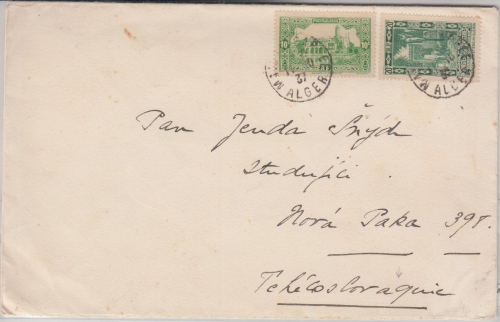 ALGERIE
37
ALGERIE
Pan Jenda Šnýdr
studující
Nová Paka 398.
Tchécoslovaquie